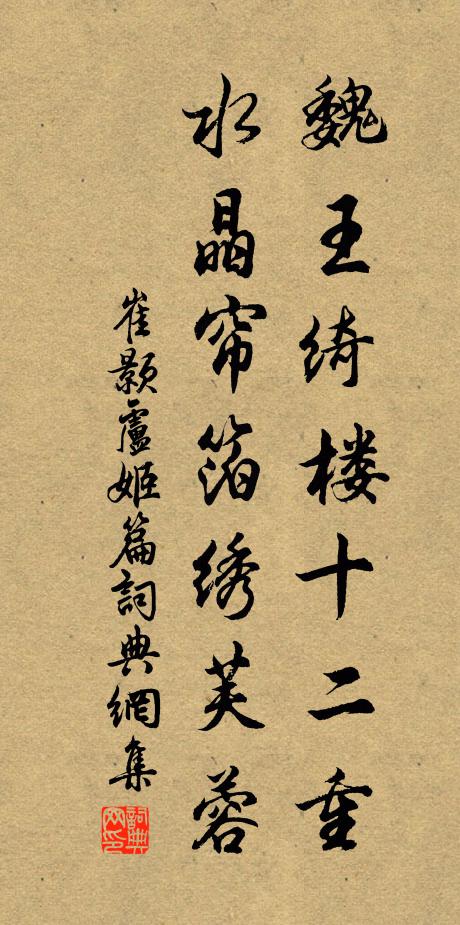 魏王绮楼十二重
水晶帘箔绣芙蓉
崔颢卢姬篇詞典網集
詞典网印